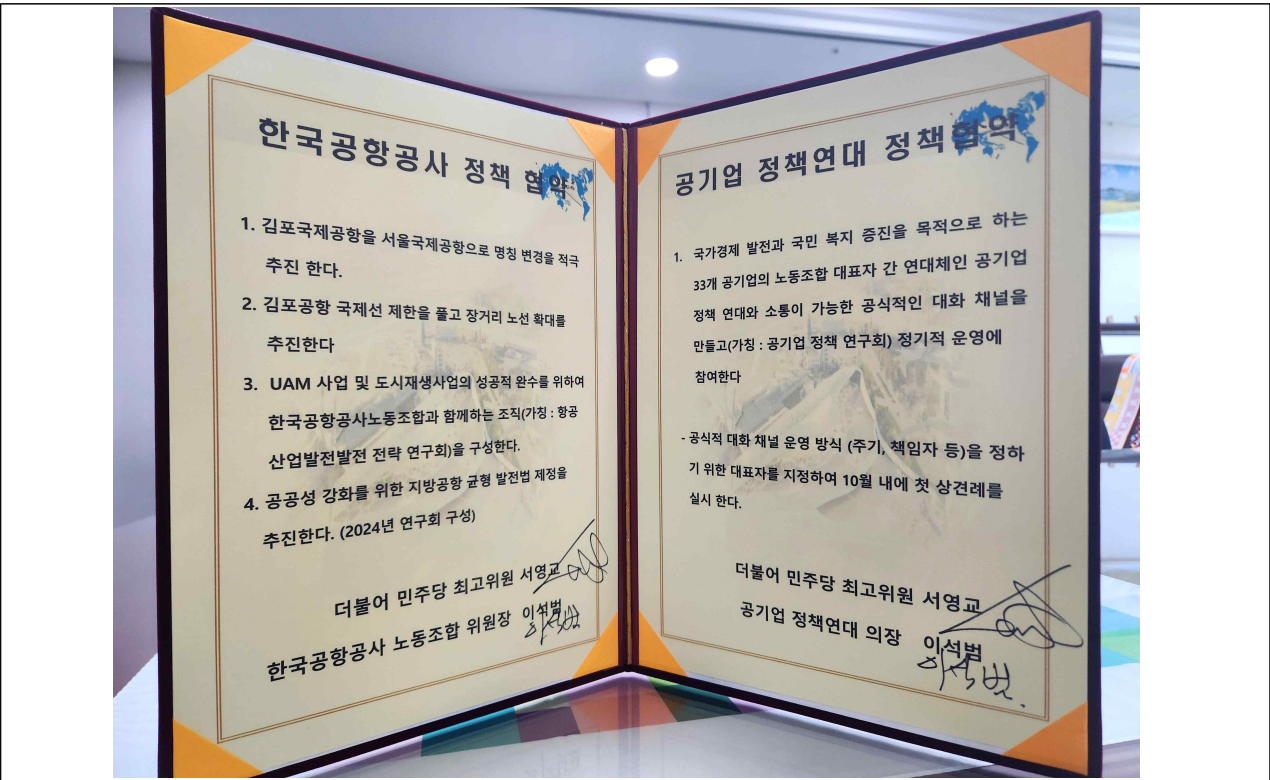 한국공항공사 정책 협약
1. 김포국제공항을 서울국제공항으로 명칭 변경을 적극
추진 한다.
2. 김포공항 국제선 제한을 풀고 장거리 노선 확대를
추진한다
3. UAM 사업 및 도시재생사업의 성공적 완수를 위하여
한국공항공사노동조합과 함께하는 조직(가칭 : 항공
산업발전발전 전략 연구회)을 구성한다.
4. 공공성 강화를 위한 지방공항 균형 발전법 제정을
추진한다. (2024년 연구회 구성)
더불어 민주당 최고위원 서영교
한국공항공사 노동조합 위원장 이석범
이석범
공기업 정책연대 정책협약
1. 국가경제 발전과 국민 복지 증진을 목적으로 하는
33개 공기업의 노동조합 대표자 간 연대체인 공기업
정책 연대와 소통이 가능한 공식적인 대화 채널을
만들고(가칭 : 공기업 정책 연구회) 정기적 운영에
참여한다
- 공식적 대화 채널 운영 방식 (주기, 책임자 등)을 정하
기 위한 대표자를 지정하여 10월 내에 첫 상견례를
실시 한다.
더불어 민주당 최고위원 서영교
공기업 정책연대 의장 이석범
이석범.